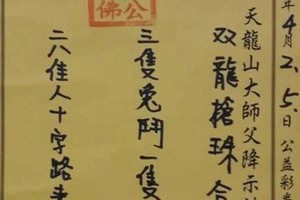 年4月2.5.日公益彩券
天龍山大師父降示
双龍搶珠合
三隻兔鬥一隻
二八佳人十字路
公
佛